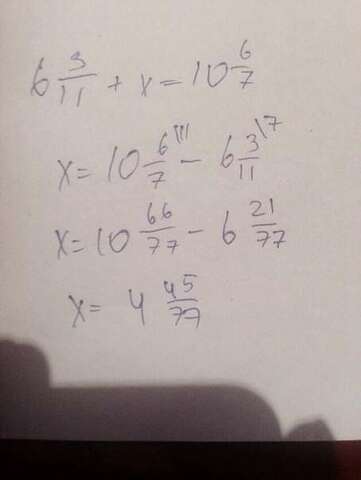 6 3/11 + x = 10 6/7
x = 10 6/7 \11 - 6 3/11 \7
x = 10 66/77 - 6 21/77
x = 4 45/77